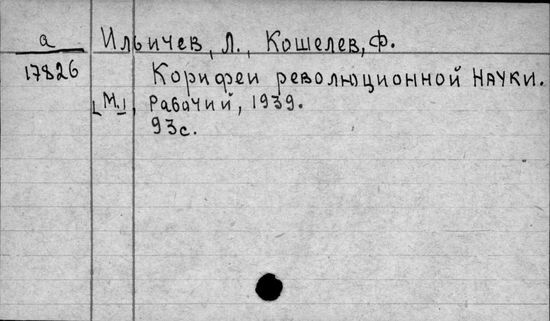 а Ильичев, Л., Кошелев, Ф.
17826 Корифеи революционной науки.
[М.], Рабочий, 1939.
93с.